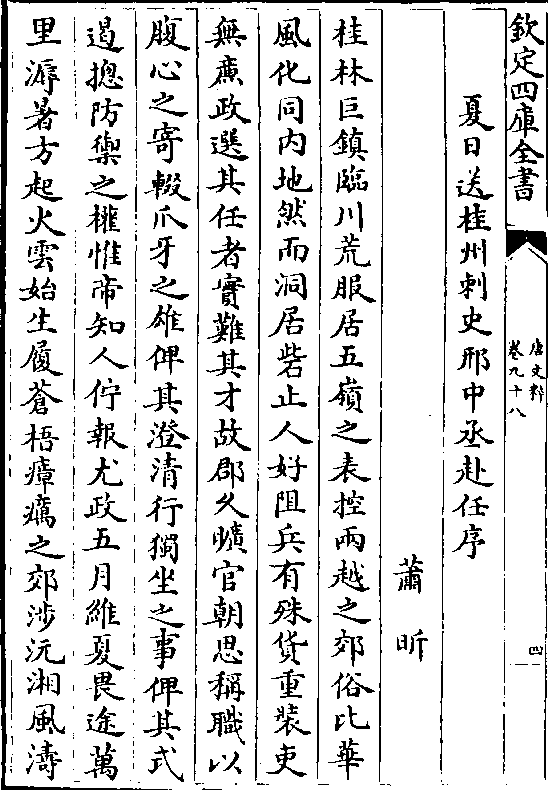 欽定四庫全書
唐文粹
卷九十八
四
夏日送桂州刺史邢中丞赴任序
蕭昕
桂林巨鎮臨川荒服居五嶺之表控兩越之郊俗比華
風化同内地然而洞居砦止人好阻兵有殊貨重裝吏
無亷政選其任者實難其才故郡久曠官朝思稱職以
腹心之寄輟爪牙之雄俾其澄清行獨坐之事俾其式
遏揔防禦之權惟帝知人佇報尤政五月維夏畏途萬
里溽暑方起火雲始生履蒼梧瘴癘之郊涉沅湘風濤